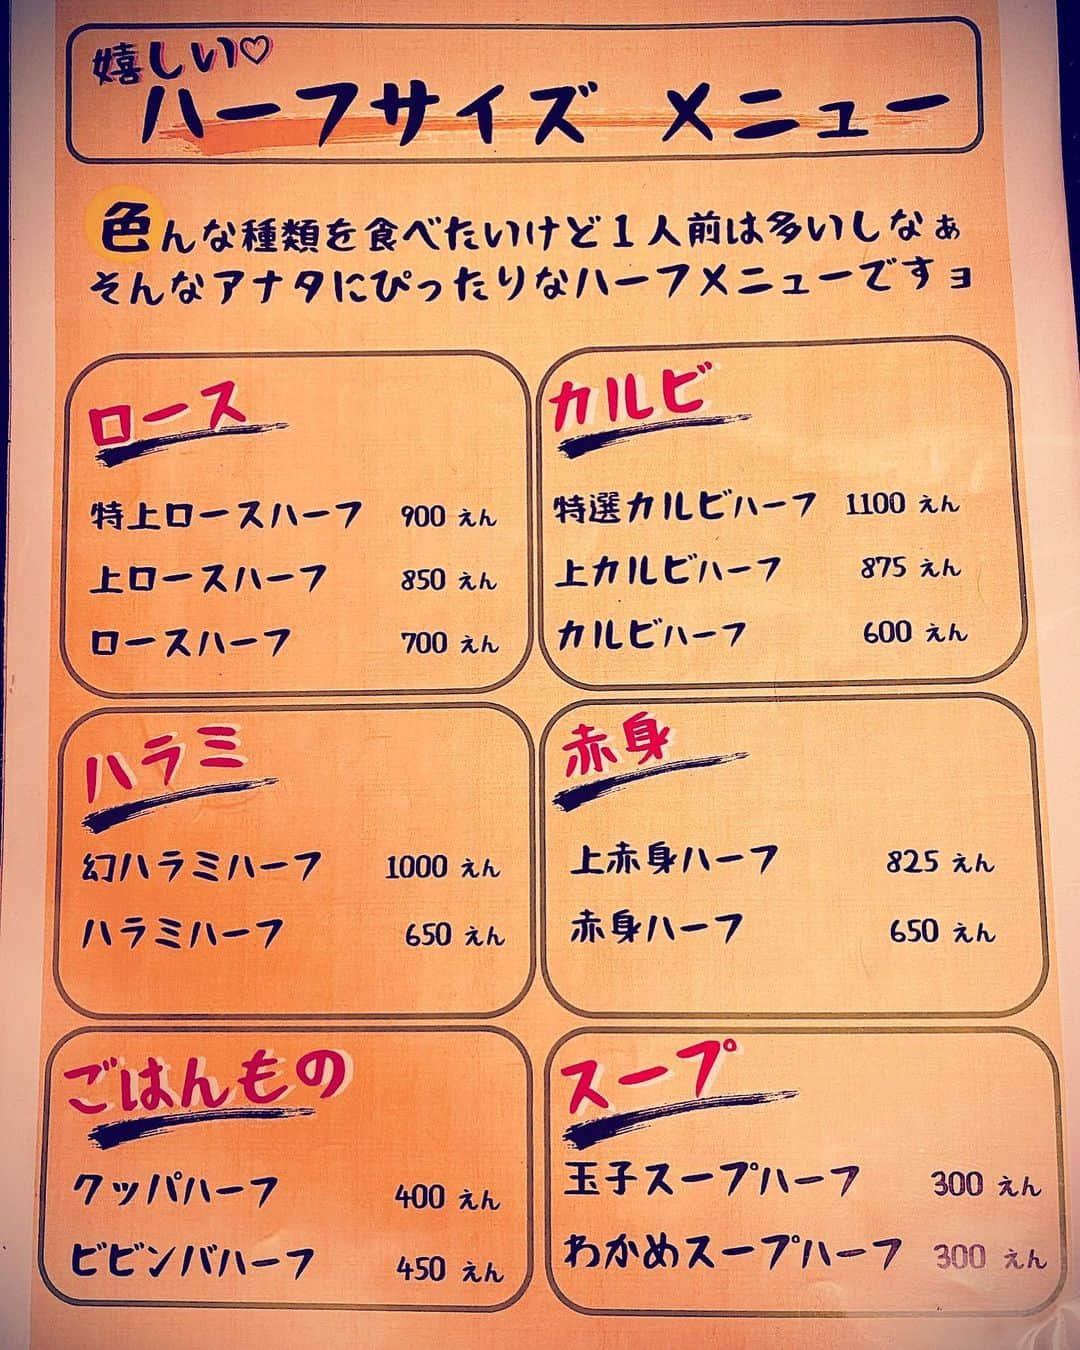 嬉しい♡
ハーフサイズ メニュー
色んな種類を食べたいけど１人前は多いしなぁ
そんなアナタにぴったりなハーフメニューですョ
ロース
特上ロースハーフ 900 えん
上ロースハーフ 850 えん
ロースハーフ 700 えん
カルビ
特選カルビハーフ 1100 えん
上カルビハーフ 875 えん
カルビハーフ 600 えん
ハラミ
幻ハラミハーフ 1000 えん
ハラミハーフ 650 えん
赤身
上赤身ハーフ 825 えん
赤身ハーフ 650 えん
ごはんもの
クッパハーフ 400 えん
ビビンバハーフ 450 えん
スープ
玉子スープハーフ 300 えん
わかめスープハーフ 300 えん